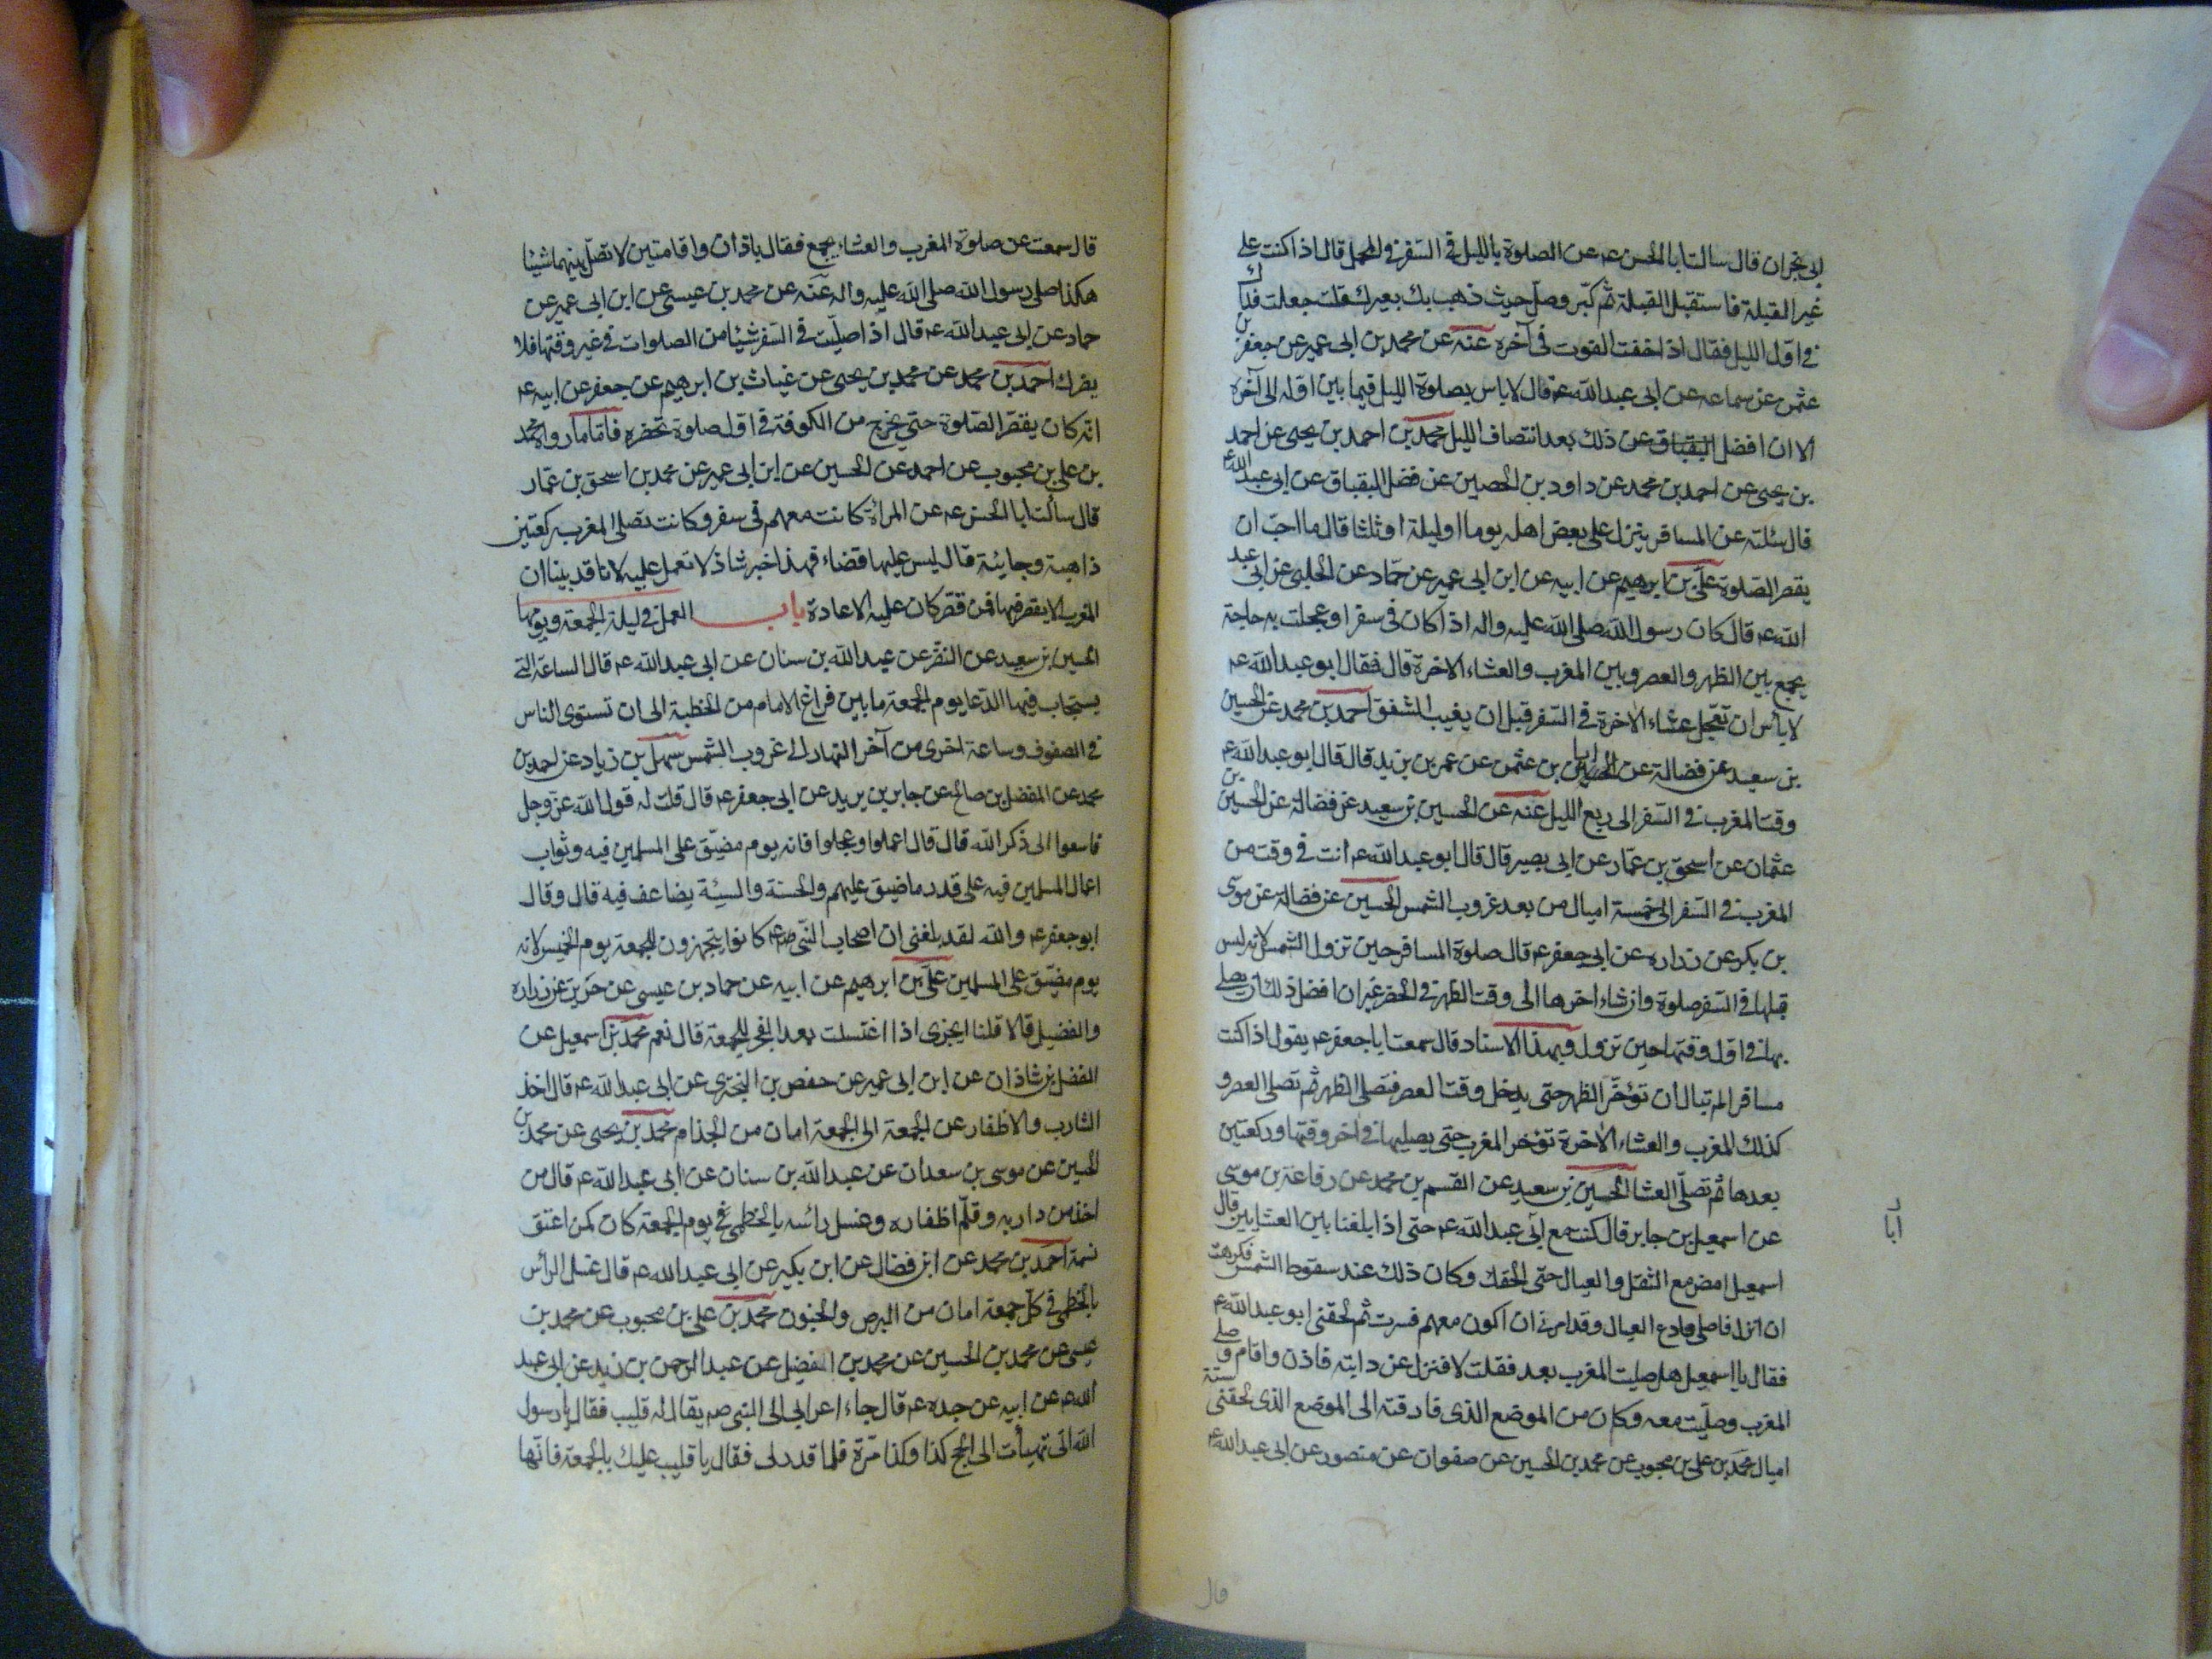 ابى نجران قال سالت ابا الحسن عم عن الصلوة بالليل فى السّفر فى المحمل قال اذا كنت على
غير القبلة فاستقبل القبلة ثم كبّر وصلّ حيث ذهب بك بعيرك قلت جعلت فداك
فى اوّل الليل فقال اذا خفت الفوت فى آخره عنه عن محمد بن ابى عمير عن جعفر بن
عثمن عن سماعه عن ابى عبد الله عم قال لا باس بصلوة الليل فيما بين اوّله الى آخره
الا ان افضل البقباق عن ذلك بعد انتصاف الليل محمد بن احمد بن يحيى عن احمد
بن يحيى عن احمد بن محمد عن داود بن الحصين عن فضل البقباق عن ابى عبد الله عم
قال سئلته عن المسافر ينزل على بعض اهله يوما او ليلة او ثلثا قال ما احبّ ان
يقصر الصّلوة علىّ بن ابرهيم عن ابيه عن ابن ابى عمير عن حمّاد عن الحلبى عن ابى عبد
الله عم قال كان رسول الله صلى الله عليه واله اذا كان فى سفر او عجلت به حاجة
يجمع بين الظهر والعصر وبين المغرب والعشاء الاخرة قال فقال ابو عبد الله عم
لا بأس ان تعجّل عشاء الاخرة فى السّفر قبل ان يغيب الشفق احمد بن محمد عن الحسين
بن سعيد عن فضالة عن الحسين ابان بن عثمن عن عمر بن يزيد قال قال ابو عبد الله عم
وقت المغرب فى السّفر الى ربع الليل عنه عن الحسين بن سعيد عن فضالة عن الحسين بن
عثمان عن اسحق بن عمّار عن ابى بصير قال قال ابو عبد الله عم انت فى وقت من
المغرب فى السّفر الى خمسة اميال من بعد غروب الشمس الحسين عن فضالة عن موسى
بن بكر عن زراره عن ابى جعفر عم قال صلوة المسافر حين تزول الشّمس لانه ليس
قبلها فى السّفر صلوة وان شاء اخرها الى وقت الظهر فى الحضر غير ان افضل ذلك ان يصلى
بها فى اوّل وقتها حين تزول وبهذا الاسناد قال سمعت ابا جعفر عم يقول اذا كنت
مسافرا لم تبال ان تؤخّر الظهر حتى يدخل وقت العصر فتصلى الظهر ثم تصلى العصر و
كذلك المغرب والعشاء الاخرة تؤخر المغرب حتى يصليها فى اخر وقتها وركعتين
بعدها ثم تصلّى العشا الحسين بن سعيد عن القسم بن محمد عن رفاعة بن موسى
عن اسمعيل بن جابر قال كنت مع ابى عبد الله عم حتى اذا بلغنا بين العشايين قال
ابا
اسمعيل امض مع الثقل والعيال حتى الحقك وكان ذلك عند سقوط الشّمس فكرهت
ان انزل فاصلى وادع العيال وقد امرنى ان اكون معهم فسرت ثم لحقنى ابو عبد الله عم
فقال يا اسمعيل هل صليت المغرب بعد فقلت لا فنزل عن دابّته فاذن واقام وصلى
المغرب وصلّيت معه وكان من الموضع الذى فارقته الى الموضع الذى لحقنى ستة
اميال محمد بن على بن محبوب عن محمد بن الحسين عن صفوان عن منصور عن ابى عبد الله عم
قال
قال سمعت عن صلوة المغرب والعشاء بجمع فقال باذان واقامتين لا تصلّ بينهما شيئا
هكذا صلى رسول الله صلى الله عليه واله عنه عن محمد بن عيسى عن ابن ابى عمير عن
حماد عن ابى عبد الله عم قال اذا صلّيت فى السّفر شيئا من الصلوات فى غير وقتها فلا
يضرك احمد بن محمد عن محمد بن يحيى عن غياث بن ابرهيم عن جعفر عن ابيه عم
انّه كان يقصّر الصّلوة حتى يخرج من الكوفة فى اوّل صلوة تحضره فامّا ما رواه محمد
بن على بن محبوب عن احمد عن الحسين عن ابن ابى عمير عن محمد بن اسحق بن عمّار
قال سألت ابا الحسن عم عن المرأة كانت معهم فى سفر وكانت تصلى المغرب ركعتين
ذاهبة وجايئة قال ليس عليها قضاء فهذا خبر شاذ لا تعمل عليه لانا قد بينا ان
المغرب لا يقصر فيها فمن قصّر كان عليه الاعادة باب العمل فى ليلة الجمعة ويومها
الحسين بن سعيد عن النضر عن عبد الله بن سنان عن ابى عبد الله عم قال الساعة التى
يستجاب فيها الدّعا يوم الجمعة ما بين فراغ الامام من الخطبة الى ان تستوى الناس
فى الصفوف وساعة اخرى من آخر النهار الى غروب الشّمس سهل بن زياد عن احمد بن
محمد عن المفضل بن صالح عن جابر بن يزيد عن ابى جعفر عم قال قلت له قول الله عزّ وجل
فاسعوا الى ذكر الله قال قال اعملوا وعجلوا فانه يوم مضيّق على المسلمين فيه وثواب
اعمال المسلمين فيه على قدر ما ضيق عليهم والحسنة والسيّئة يضاعف فيه قال وقال
ابو جعفر عم والله لقد بلغنى ان اصحاب النّبى صم كانوا يتجهزون للجمعة يوم الخميس لانه
يوم مضيّق على المسلمين علىّ بن ابرهيم عن ابيه عن حماد بن عيسى عن حريز عن زراره
والفضيل قالا قلنا ايجزى اذا اغتسلت بعد الفجر للجمعة قال نعم محمد بن اسمعيل عن
الفضل بن شاذان عن ابن ابى عمير عن حفص بن البخترى عن ابى عبد الله عم قال اخذ
الشارب والاظفار عن الجمعة الى الجمعة امان من الجذام محمد بن يحيى عن محمد بن
الحسين عن موسى بن سعدان عن عبد الله بن سنان عن ابى عبد الله عم قال من
اخذ من شاربه وقلّم اظفاره وغسل رأسه بالخطمى فى يوم الجمعة كان كمن اعتق
نسمة احمد بن محمد عن ابن فضال عن ابن بكير عن ابى عبد الله عم قال غسل الرأس
بالخطمى فى كل جمعة امان من البرص والجنون محمد بن على بن محبوب عن محمد بن
عيسى عن محمد بن الحسين عن محمد بن الفضيل عن عبد الرحمن بن زيد عن ابى عبد
الله عم عن ابيه عن جده عم قال جاء اعرابى الى النبى صم يقال له قليب فقال يا رسول
الله انى تهيأت الى الحج كذا وكذا مرّة فلما قدر لى فقال يا قليب عليك بالجمعة فانّها